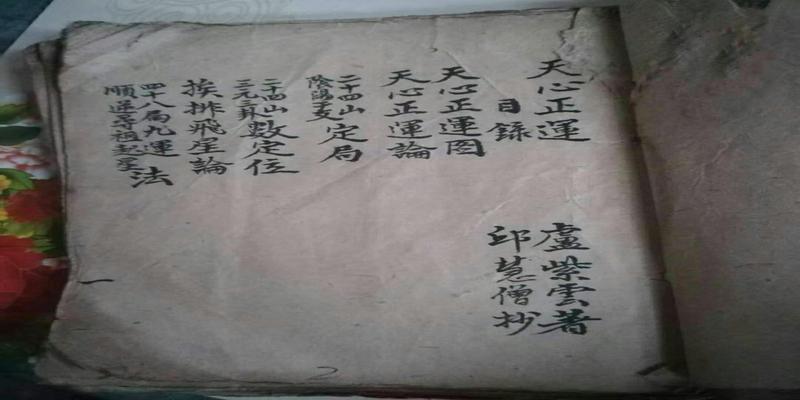 天心正運
盧紫雲著
目錄
邱慧僧抄
天心正運图
天心正運論
二十四山
陰陽干支
定局
二十四山
三元三卦
數定位
挨排飛星論
四十八局九運
順逆尋祖起星
法